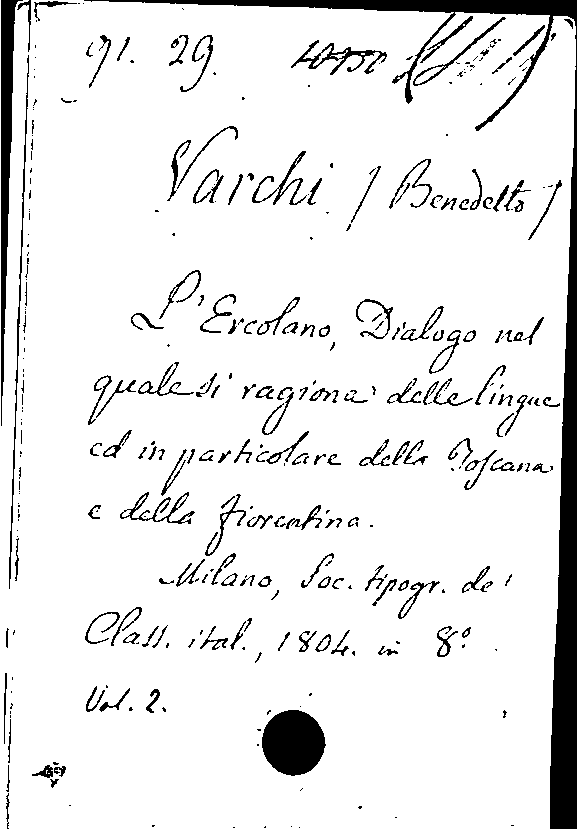 91. 29.
Varchi / Benedetto /
L'Ercolano, Dialogo nel
quale si ragiona delle lingue
ed in particolare della Toscana
e della fiorentina.
Milano, Soc. tipogr. de'
Class. ital., 1804. in 8º.
Vol. 2.